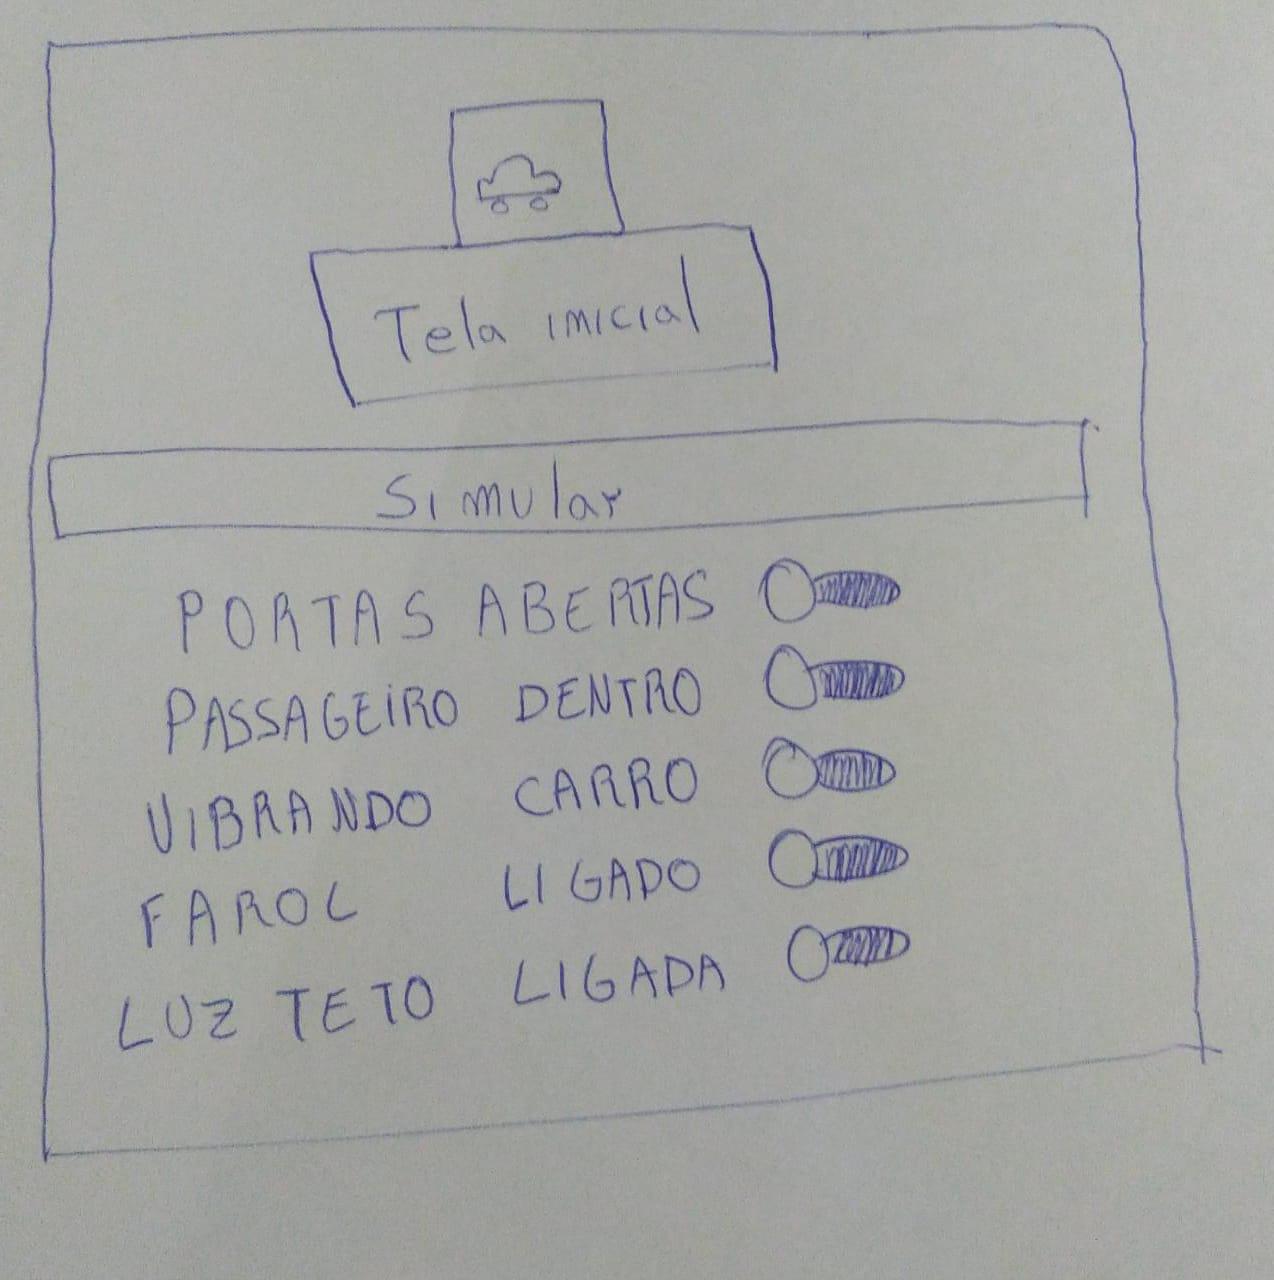 Tela inicial
Simular
PORTAS ABERTAS
PASSAGEIRO DENTRO
VIBRANDO CARRO
FAROL LIGADO
LUZ TETO LIGADA